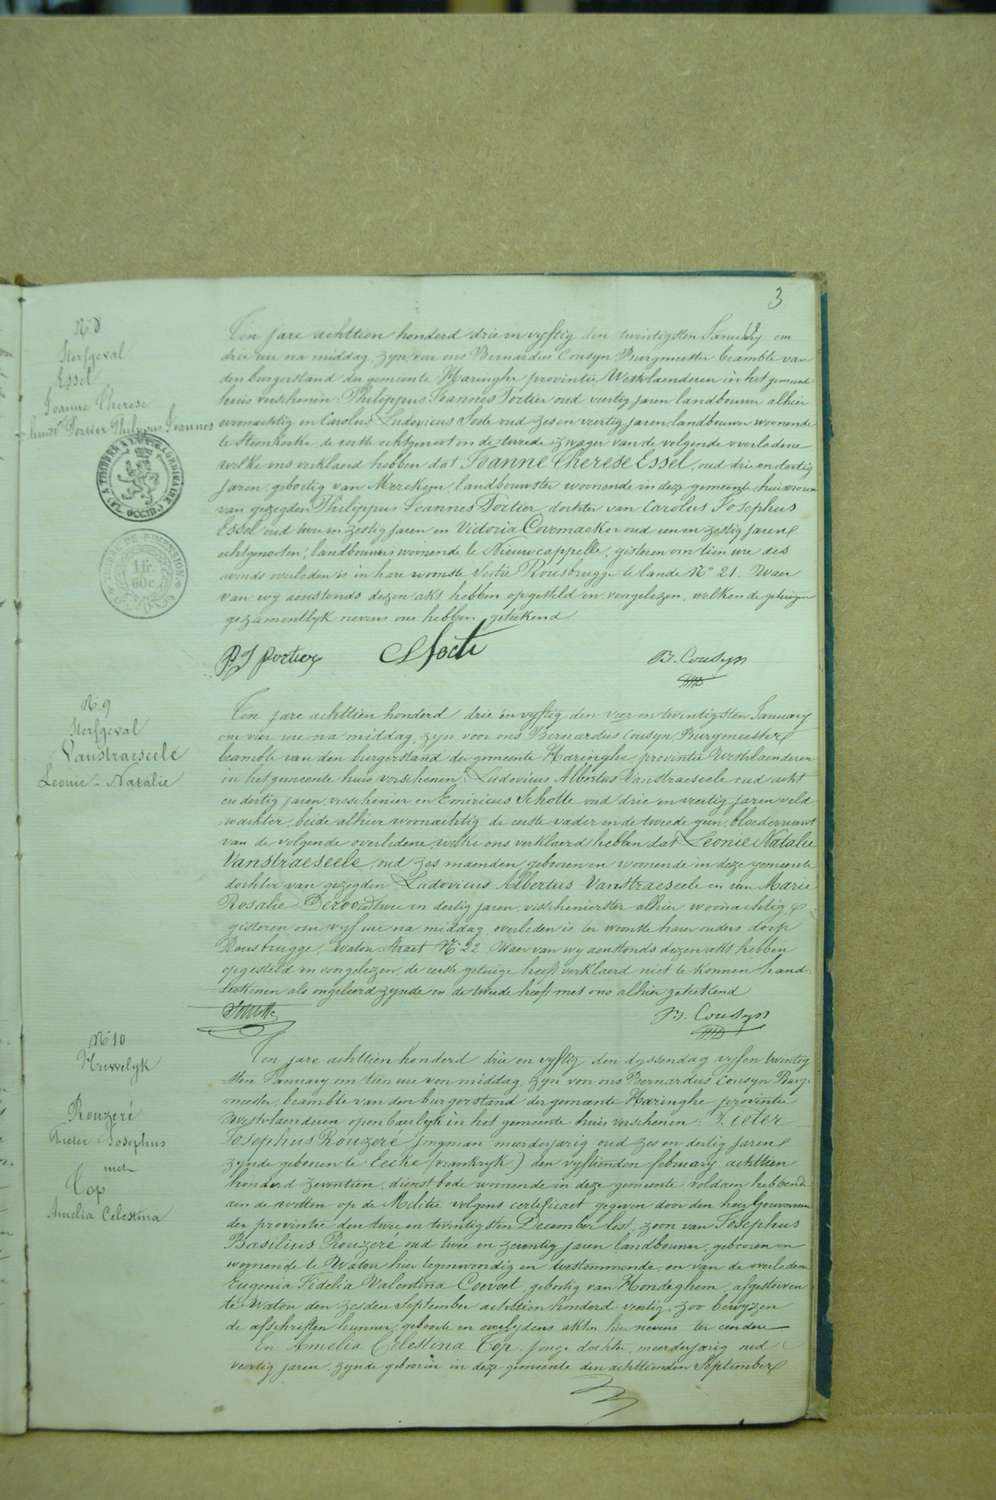 3
N° 8
Sterfgeval
Essel
Joanne Therese
huisv Portier Philippus Joannes
Ten jare achttien honderd drie en vyftig den twintigsten January om
drie ure na middag, zyn voor ons Bernardus Cousyn Burgmeester beambte van
den burgerstand der gemeente Haringhe provintie Westvlaenderen in het gemeente
huis verschenen Philippus Joannes Portier oud viertig jaren landbouwer alhier
woonachtig en Carolus Ludovicus Socte oud zes en veertig jaren, landbouwer woonende
te Steenkerke de eerste echtgenoot en de tweede zwager van de volgende overledene
welke ons verklaerd hebben dat Joanne Therese Essel, oud drie en dertig
jaren, geboortig van Merckem, landbouwster woonende in deze gemeente huisvrouw
van gezegden Philippus Joannes Portier, dochter van Carolus Josephus
Essel oud twee en zestig jaren en Victoria Coemaecker oud een en zestig jaren
echtgenoten, landbouwers woonende te Nieuwcappelle, gisteren om tien ure des
avonds overleden is in hare woonste Sectie Rousbrugge te lande N° 21. Waer
van wy aenstonds dezen akt hebben opgesteld en voorgelezen, welken de getuigen
gezamentlyk nevens ons hebben geteekend
PJ Portier
B. Cousyn
N° 9
Sterfgeval
Vanstraeseele
Leonie - Natalie
Ten jare achttien honderd drie en vyftig den vier en twintigsten January
om vier ure na middag, zyn voor ons Bernardus Cousyn, Burgmeester
beambte van den burgerstand der gemeente Haringhe provintie Westvlaenderen
in het gemeente huis verschenen: Ludovicus Albertus Vanstraeseele oud acht
en dertig jaren, visschenier en Emiricus Scholte oud drie en veertig jaren veld
wachter, beide alhier woonachtig de eerste vader en de tweede geen bloedverwant
van de volgende overledene, welke ons verklaerd hebben dat Leonie Natalie
Vanstraeseele, oud zes maenden geboren en woonende in deze gemeente
dochter van gezegden Ludovicus Albertus Vanstraeseele en van Marie
Rosalie Deroo oud twee en dertig jaren, visschenierster alhier woonachtig,
gisteren om vyf ure na middag overleden is ter woonste harer ouders dorp
Rousbrugge, watou straet N° 22. Waer van wy aenstonds dezen akt hebben
opgesteld en voorgelezen, de eerste getuige heeft verklaerd niet te konnen hand
teekenen als ongeleerd zynde en de tweede heeft met ons alhier geteekend
B. Cousyn
N° 10
Huwelyk
Rouzeré
Pieter Josephus
met
Top
Amelia Celestina
Ten jare achttien honderd drie en vyftig den dyssendag vyf en twintig
sten January om tien ure voor middag, zyn voor ons Bernardus Cousyn Burg-
meester, beambte van den burgerstand der gemeente Haringhe provintie
Westvlaenderen openbaerlyk in het gemeente huis verschenen: Pieter
Josephus Rouzeré jongman meerderjarig oud zes en dertig jaren
zynde geboren te Eecke (frankryk) den vyftienden february achttien
honderd zeventien, dienstbode woonende in deze gemeente voldaen hebbende
aen de wetten op de Militie volgens certificaet gegeven door den heer Gouverneur
der provintie den twee en twintigsten December lest, zoon van Josephus
Basilius Rouzeré oud twee en zeventig jaren landbouwer, geboren en
woonende te Watou hier tegenwoordig en toestemmende en van de overledene
Eugenia Fidelia Valentina Coevoet, geboortig van Hondeghem, afgestorven
te Watou den zesden September achttien honderd veertig, zoo bewyzen
de afschriften hunner geboorte en overlydens akten hier nevens ter eendere
En Amelia Celestina Top, jonge dochter, meerderjarig oud
veertig jaren, zynde geboren in deze gemeente den achttienden September